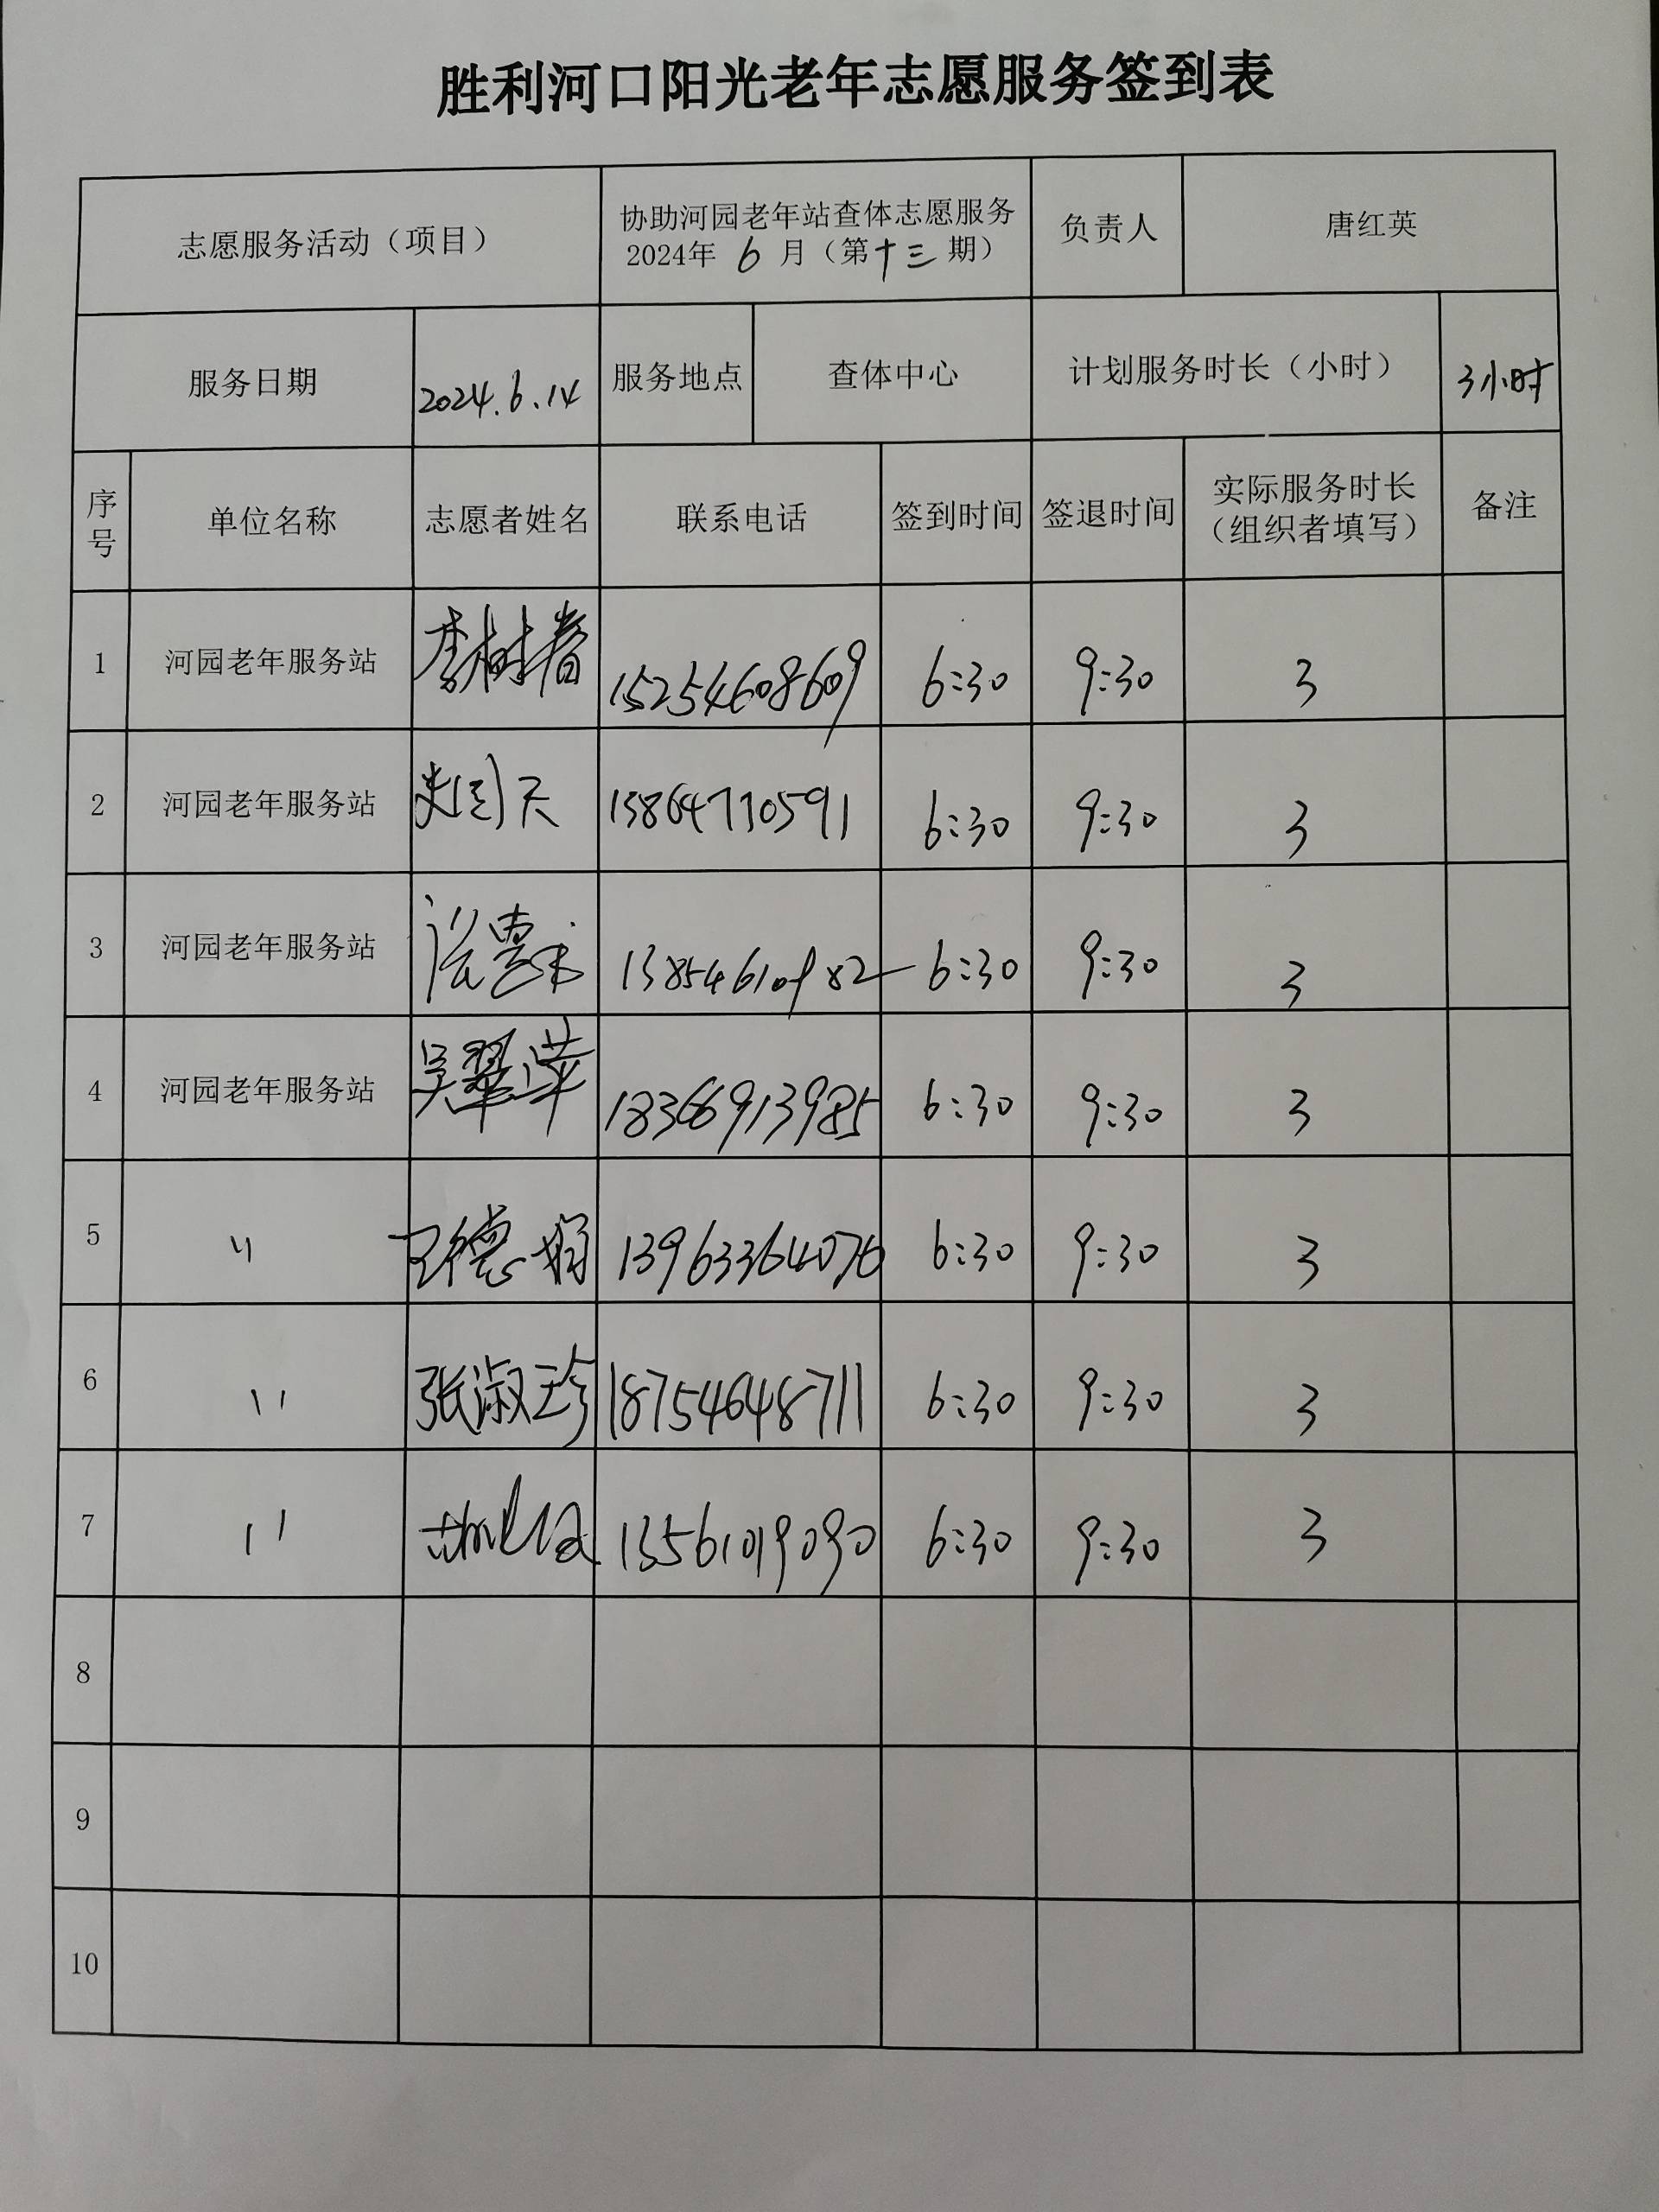 胜利河口阳光老年志愿服务签到表
志愿服务活动（项目）
协助河园老年站查体志愿服务
2024年 6 月（第十三期）
负责人
唐红英
服务日期
2024.6.14
服务地点
查体中心
计划服务时长（小时）
3小时
序号
单位名称
志愿者姓名
联系电话
签到时间
签退时间
实际服务时长
（组织者填写）
备注
1 河园老年服务站 李树春 15254608609 6:30 9:30 3
2 河园老年服务站 13864770591 6:30 9:30 3
3 河园老年服务站 13854610982 6:30 9:30 3
4 河园老年服务站 吴翠萍 18366913985 6:30 9:30 3
5 〃 王德娟 13963364076 6:30 9:30 3
6 〃 张淑珍 18754648711 6:30 9:30 3
7 〃 13561019090 6:30 9:30 3
8
9
10